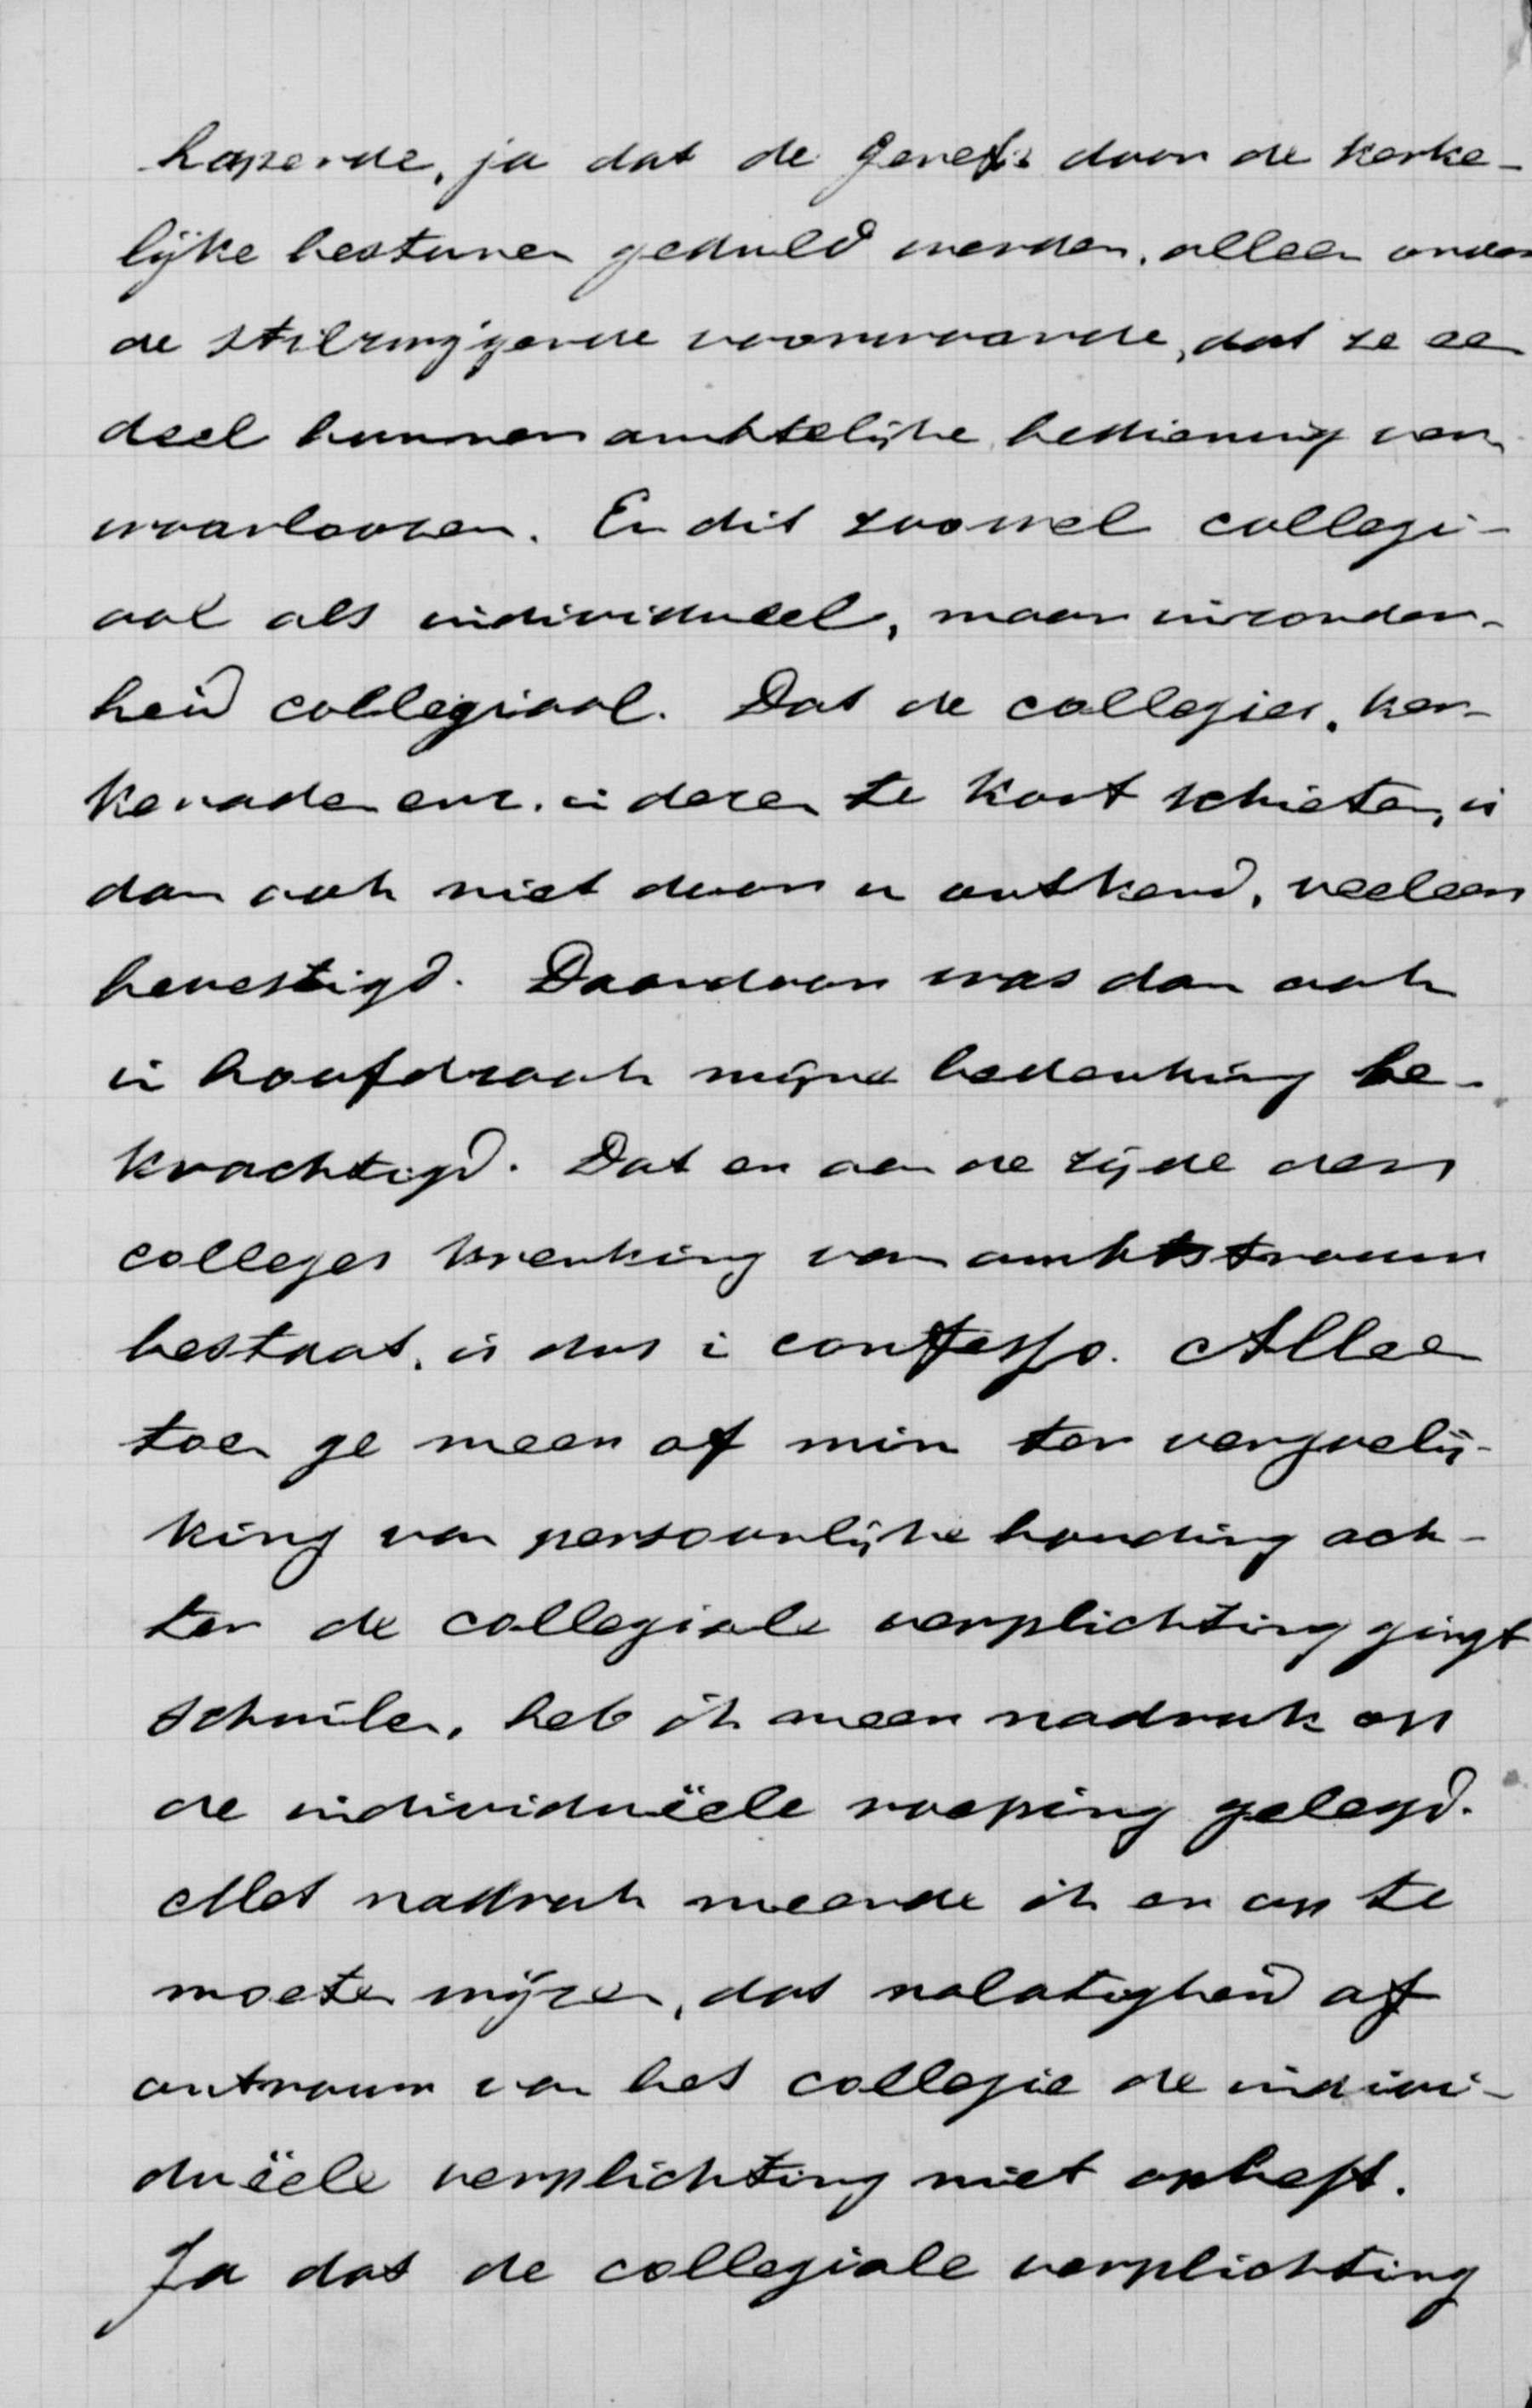 haperde, ja dat de Geref's door de kerke-
lijke besturen geduld werden, alleen onder
de stilzwijgende voorwaarde, dat ze een
deel hunner ambtelijke bediening ver-
waarloozen. En dit zoowel collegi-
aal als individueel, maar inzonder-
heid collegiaal. Dat de collegies, ker-
keraden enz. in dezen te kort schieten, is
dan ook niet door u ontkend, veeleer
bevestigd. Daardoor was dan ook
in hoofdzaak mijne bedenking be-
krachtigd. Dat er aan de zijde der
colleges krenking van ambtstrouw
bestaat, is dus in confesso. Alleen
toen ge meer of min ter vergoelij-
king van persoonlijke houding ach-
ter de collegiale verplichting gingt
schuilen, heb ik meer nadruk op
de individuëele roeping gelegd.
Met nadruk meende ik er op te
moeten wijzen, dat nalatigheid of
ontrouw van het collegie de indivi-
duëele verplichting niet opheft.
Ja dat de collegiale verplichting